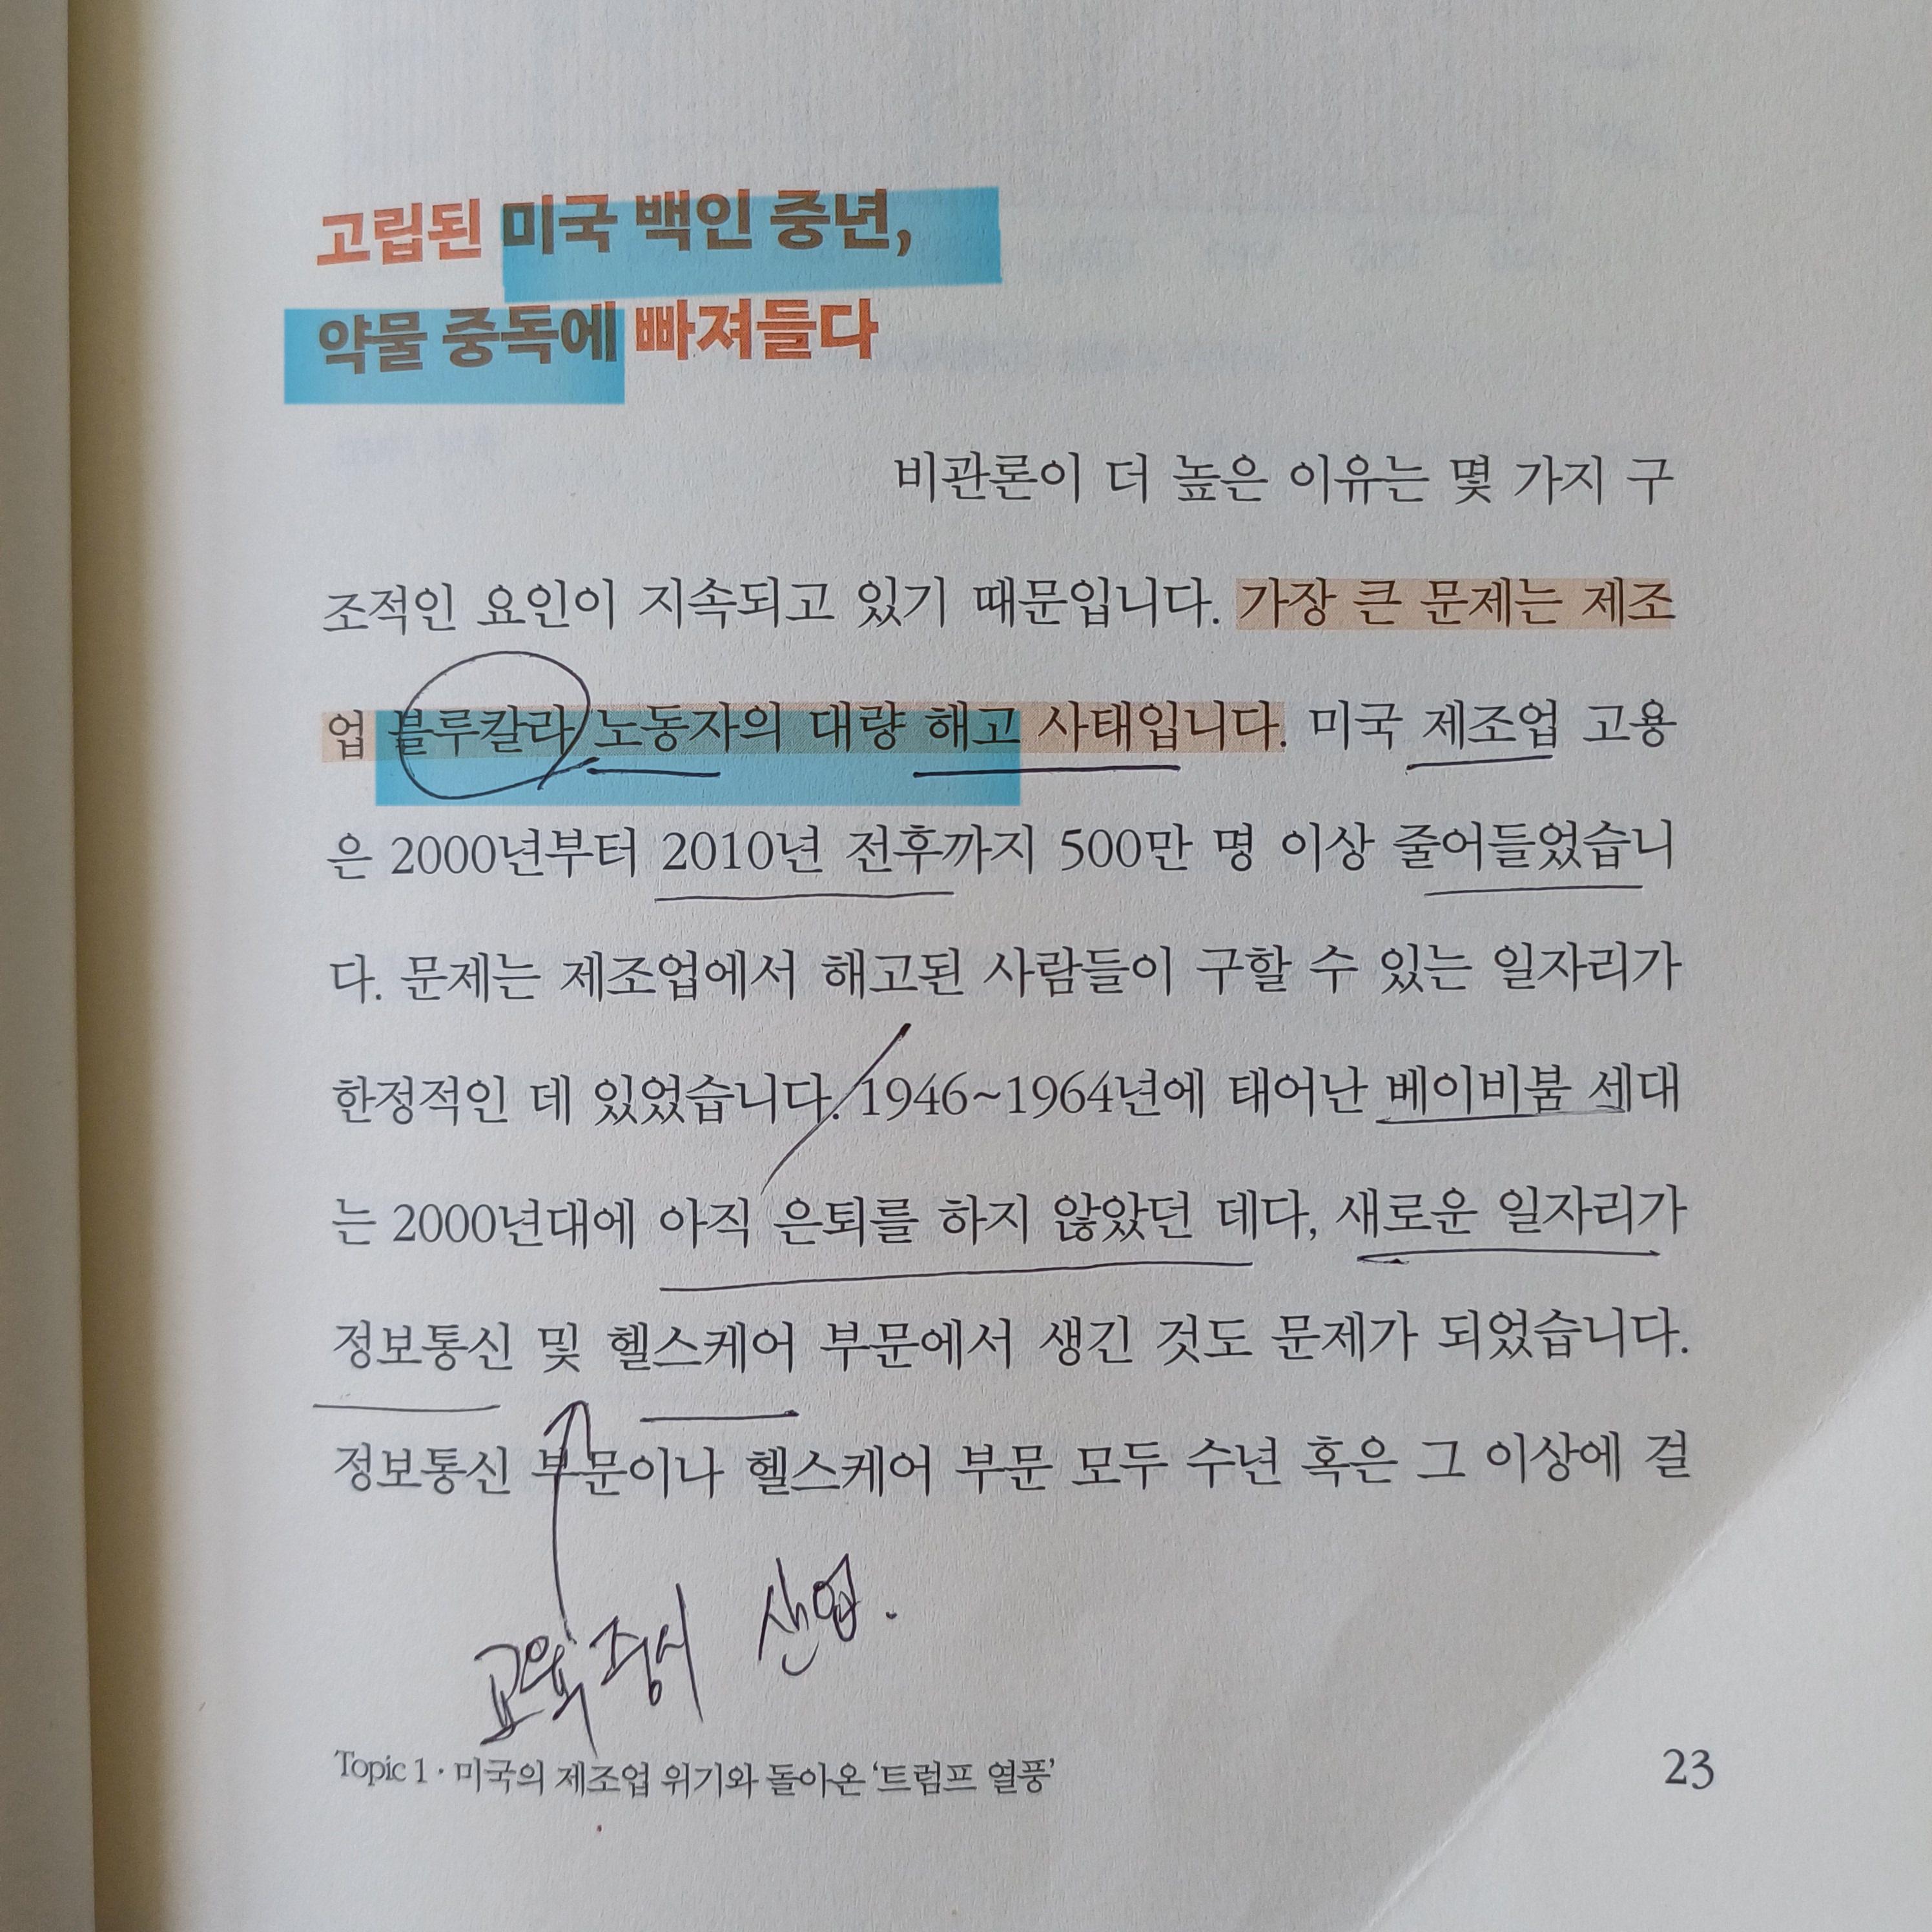 고립된 미국 백인 중년,
약물 중독에 빠져들다
비관론이 더 높은 이유는 몇 가지 구
조적인 요인이 지속되고 있기 때문입니다. 가장 큰 문제는 제조
업 블루칼라 노동자의 대량 해고 사태입니다. 미국 제조업 고용
은 2000년부터 2010년 전후까지 500만 명 이상 줄어들었습니
다. 문제는 제조업에서 해고된 사람들이 구할 수 있는 일자리가
한정적인 데 있었습니다. 1946~1964년에 태어난 베이비붐 세대
는 2000년대에 아직 은퇴를 하지 않았던 데다, 새로운 일자리가
정보통신 및 헬스케어 부문에서 생긴 것도 문제가 되었습니다.
정보통신 부문이나 헬스케어 부문 모두 수년 혹은 그 이상에 걸
교육 산업.
Topic 1 · 미국의 제조업 위기와 돌아온 ‘트럼프 열풍’
23